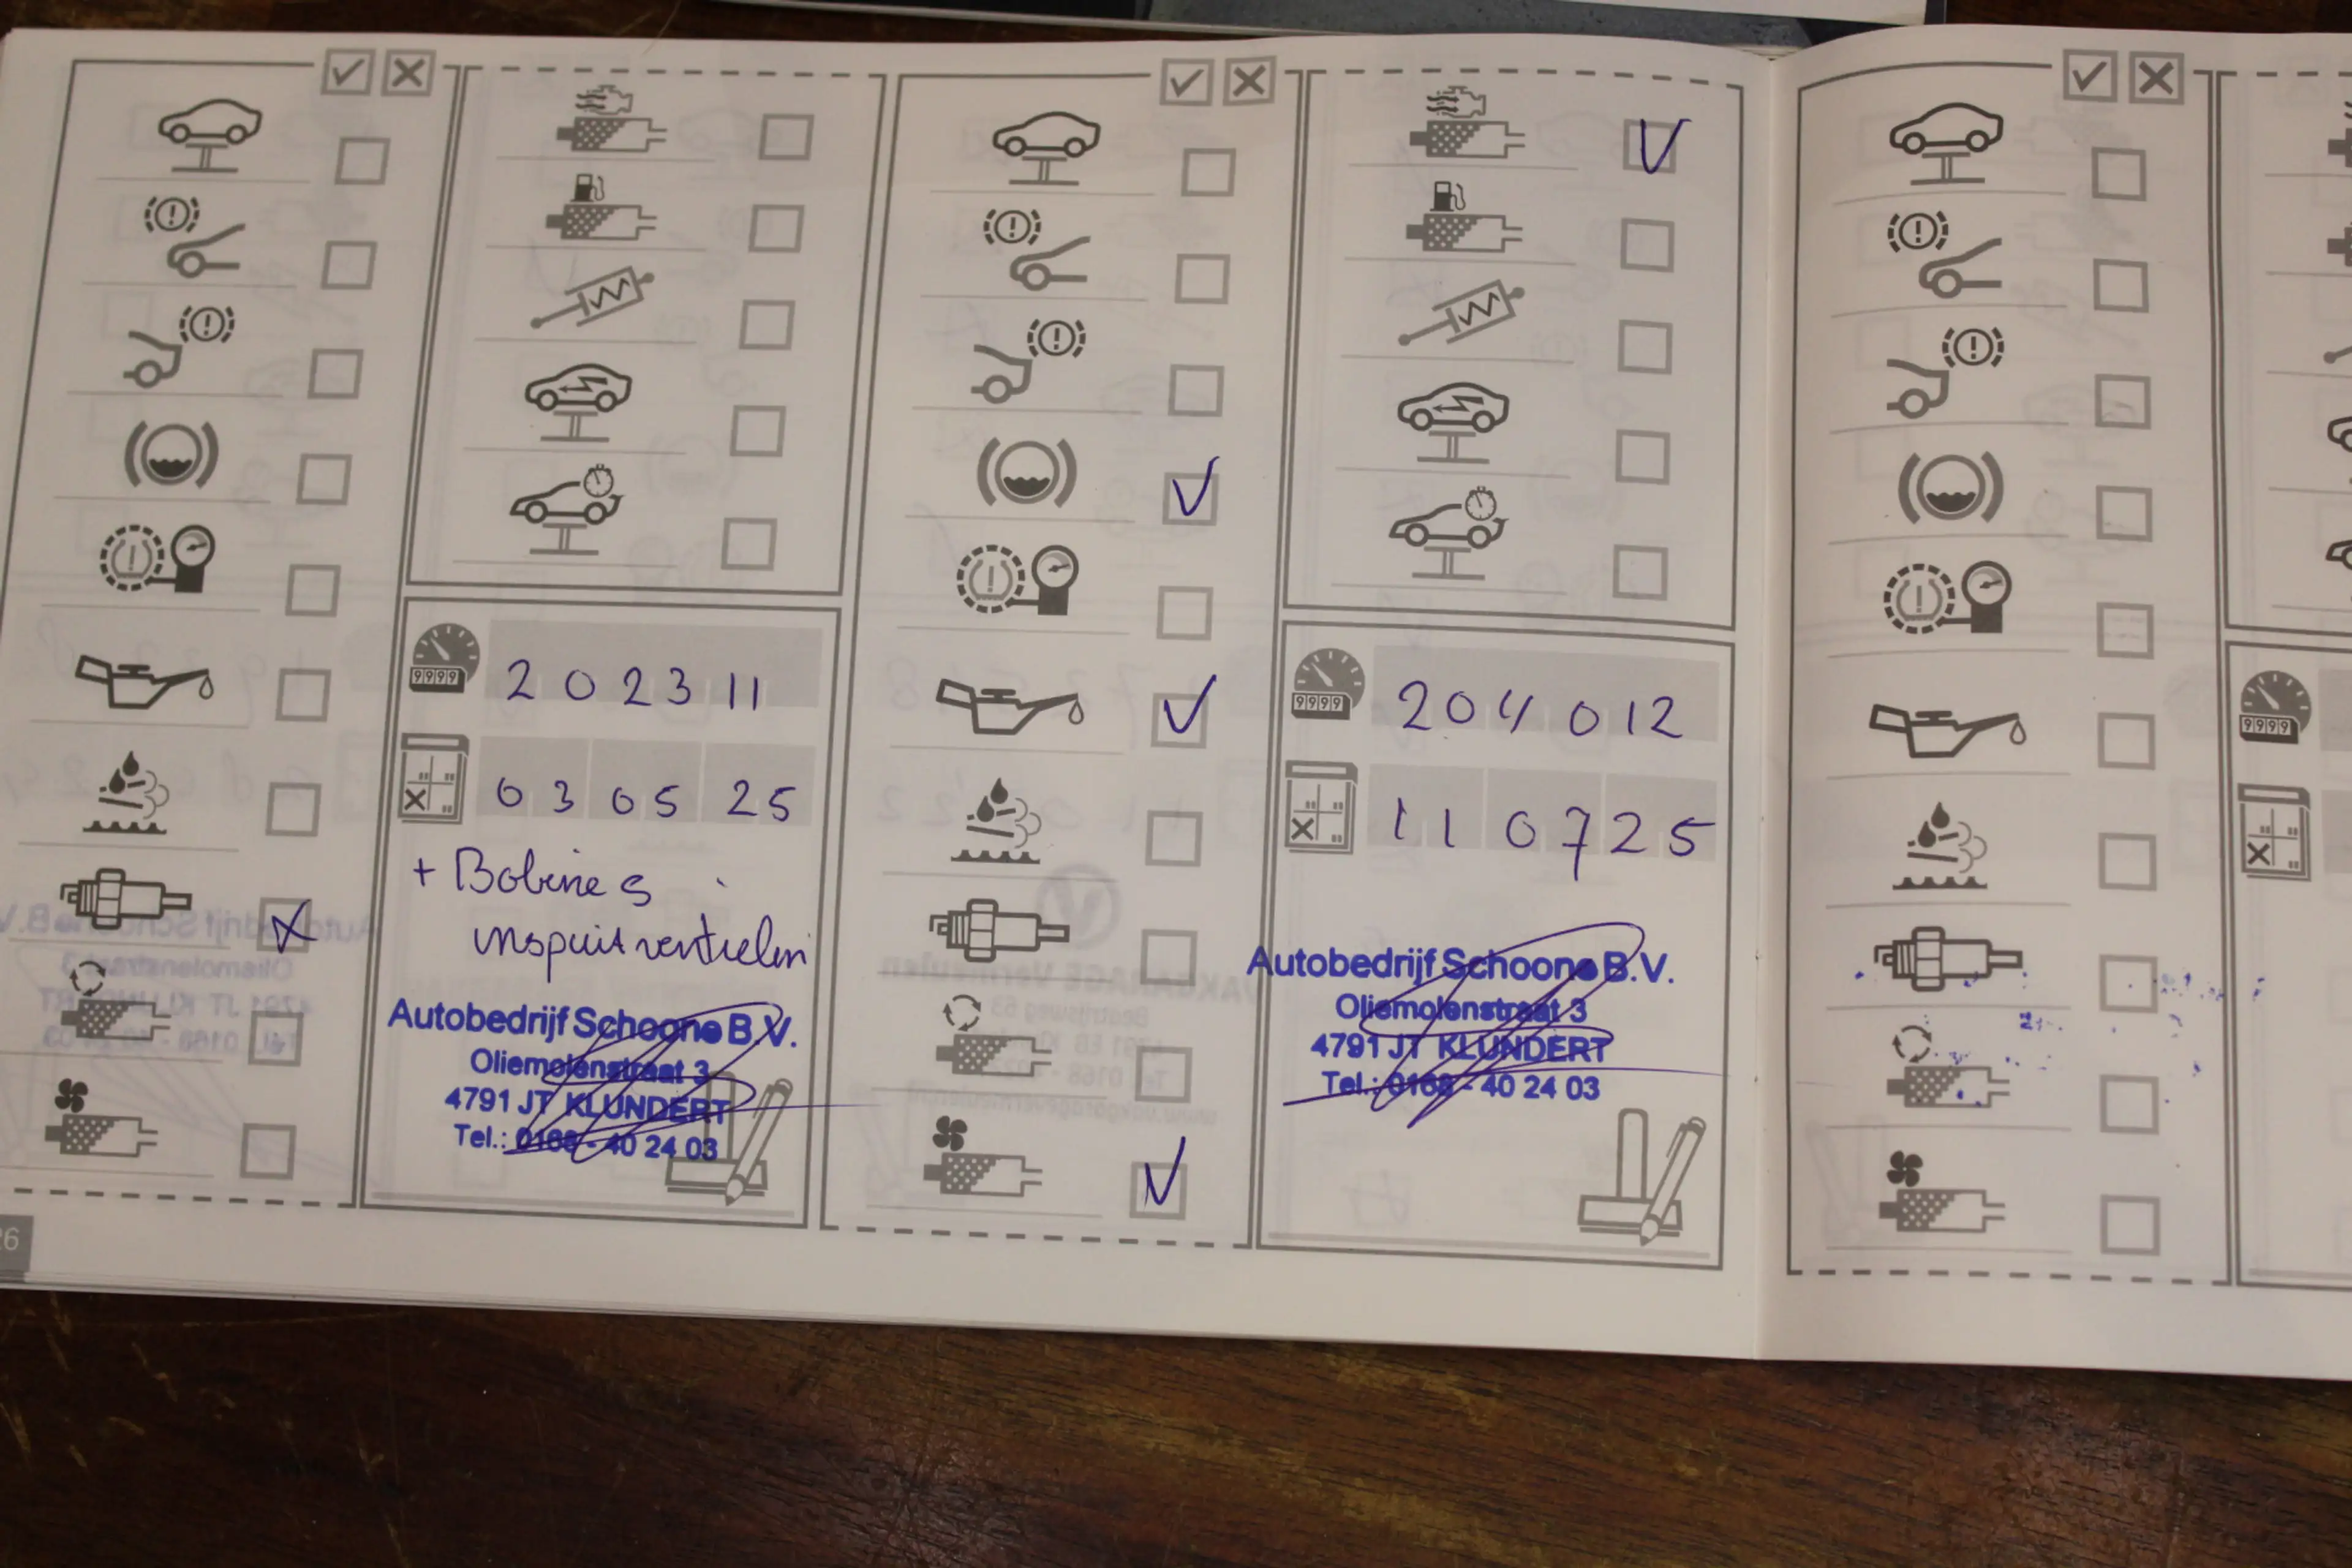 9999
2 0 2 3 11
0 3 0 5 2 5
+ Bobines
inspuitventielen
Autobedrijf Schoone B.V.
Oliemolenstraat 3
4791 JT KLUNDERT
Tel.: 0168 - 40 24 03
26
9999
2 0 4 0 1 2
1 1 0 7 2 5
Autobedrijf Schoone B.V.
Oliemolenstraat 3
4791 JT KLUNDERT
Tel.: 0168 - 40 24 03
9999